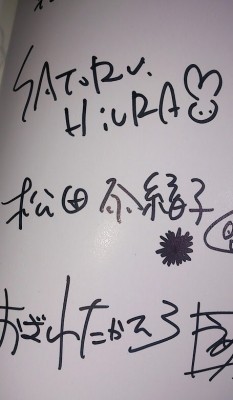 SATORU.
HiURA
松田奈緒子
おざわたかえろ